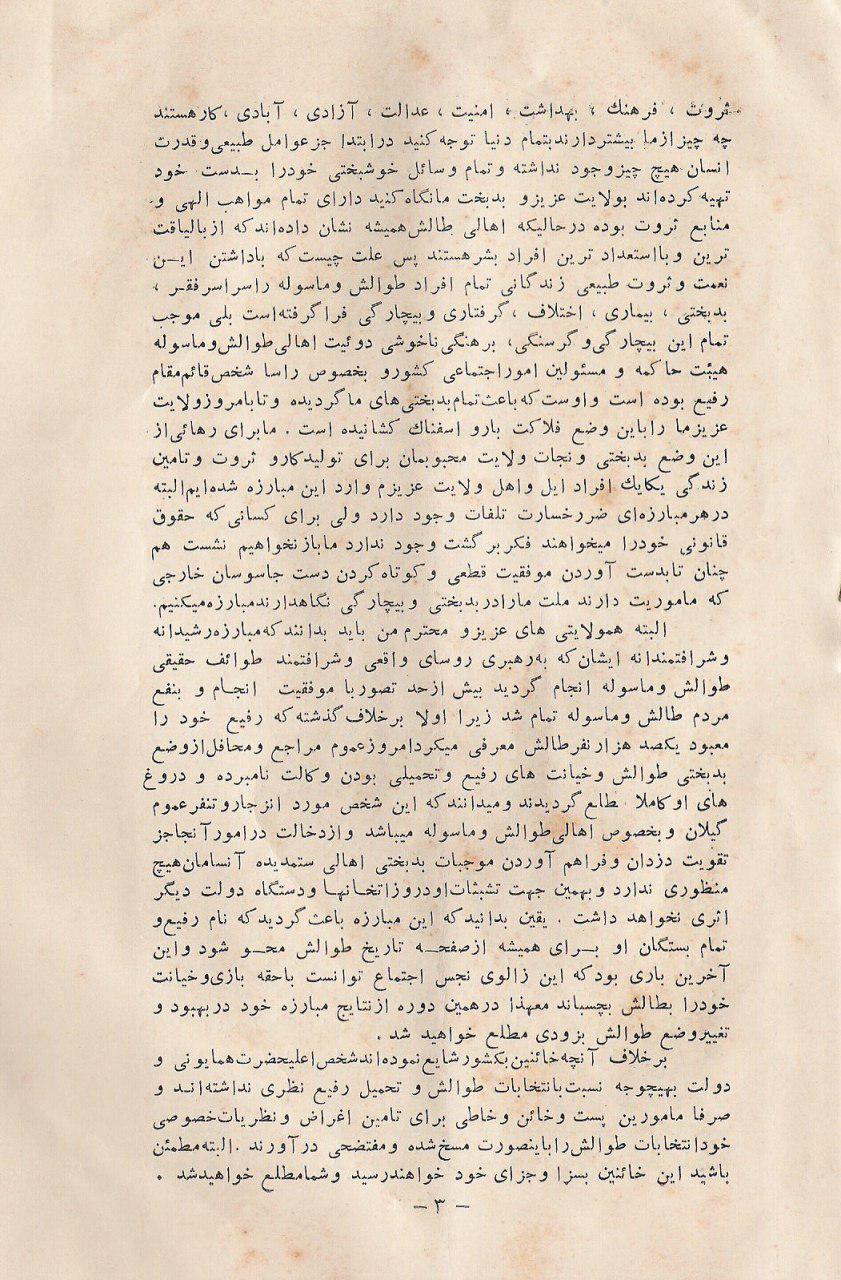 ثروت ، فرهنك ، بهداشت ، امنیت ، عدالت ، آزادی ، آبادی ، کار هستند
چه چیز از ما بیشتر دارند بتمام دنیا توجه کنید در ابتدا جز عوامل طبیعی و قدرت
انسان هیچ چیز وجود نداشته و تمام وسائل خوشبختی خود را بـدست خود
تهیه کرده‌اند بولایت عزیز و بدبخت ما نگاه کنید دارای تمام مواهب الهی و
منابع ثروت بوده در حالیکه اهالی طالش همیشه نشان داده‌اند که از بالیاقت
ترین و با استعداد ترین افراد بشر هستند پس علت چیست که با داشتن ایـن
نعمت و ثروت طبیعی زندگانی تمام افراد طوالش و ماسوله را سراسر فقـر ،
بدبختی ، بیماری ، اختلاف ، گرفتاری و بیچارگی فرا گرفته است بلی موجب
تمام این بیچارگی و گرسنگی، برهنگی ناخوشی دوئیت اهالی طوالش و ماسوله
هیئت حاکمه و مسئولین امور اجتماعی کشور و بخصوص راسا شخص قائم مقام
رفیع بوده است و اوست که باعث تمام بدبختی های ما گردیده و تا بامروز ولایت
عزیز ما را باین وضع فلاکت بار و اسفناك کشانیده است . ما برای رهائی از
این وضع بدبختی و نجات ولایت محبوبمان برای تولید کار و ثروت و تامین
زندگی یکایك افراد ایل و اهل ولایت عزیزم وارد این مبارزه شده‌ایم البته
در هر مبارزه‌ای ضرر خسارت تلفات وجود دارد ولی برای کسانی که حقوق
قانونی خود را میخواهند فکر بر گشت وجود ندارد ما باز نخواهیم نشست هم
چنان تا بدست آوردن موفقیت قطعی و کوتاه کردن دست جاسوسان خارجی
که ماموریت دارند ملت ما را در بدبختی و بیچارگی نگاهدارند مبارزه میکنیم.
البته همولایتی های عزیز و محترم من باید بدانند که مبارزه رشیدانه
و شرافتمندانه ایشان که به رهبری روسای واقعی و شرافتمند طوائف حقیقی
طوالش و ماسوله انجام گردید بیش از حد تصور با موفقیت انجـام و بنفع
مردم طالش و ماسوله تمام شد زیرا اولا بر خلاف گذشته که رفیع خود را
معبود یکصد هزار نفر طالش معرفی میکرد امروز عموم مراجع و محافل از وضع
بدبختی طوالش و خیانت های رفیع و تحمیلی بودن وکالت نامبرده و دروغ
های او کاملا مطلع گردیدند و میدانند که این شخص مورد انزجار و تنفر عموم
گیلان و بخصوص اهالی طوالش و ماسوله میباشد و از دخالت در امور آنجا جز
تقویت دزدان و فراهم آوردن موجبات بدبختی اهالی ستمدیده آنسامان هیچ
منظوری ندارد و بهمین جهت تشبثات او در وزاتخـانهـا و دستگاه دولت دیگر
اثری نخواهد داشت . یقین بدانید که این مبارزه باعث گردید که نام رفیع و
تمام بستگان او بـرای همیشه از صفحـه تاریخ طوالش محـو شود و این
آخرین باری بود که این زالوی نجس اجتماع توانست با حقه بازی و خیانت
خود را بطالش بچسباند معهذا در همین دوره از نتایج مبارزه خود در بهبود و
تغییر وضع طوالش بزودی مطلع خواهید شد .
بر خلاف آنچه خائنین بکشور شایع نموده‌اند شخص اعلیحضرت همایونی و
دولت بهیچوجه نسبت بانتخابات طوالش و تحمیل رفیع نظری نداشته‌انـد و
صرفا مامورین پست و خائن و خاطی برای تامین اغراض و نظریات خصوصی
خود انتخابات طوالش را باینصورت مسخ شده و مفتضحی در آورند . البته مطمئن
باشید این خائنین بسزا و جزای خود خواهند رسید و شما مطلع خواهید شد .
– ۳ –